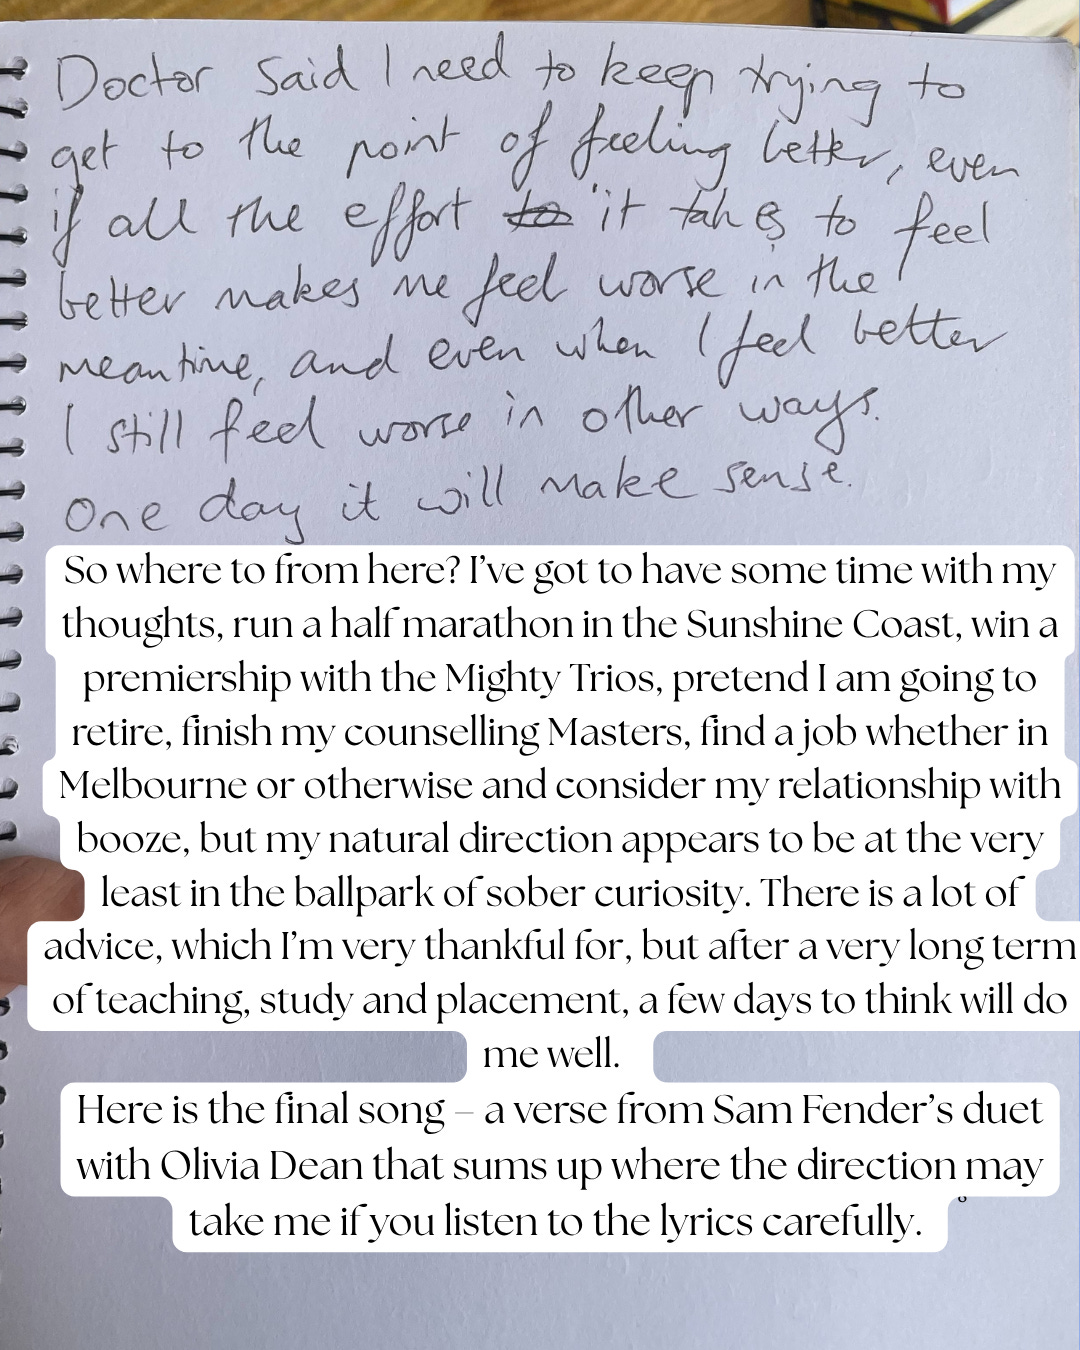 Doctor said I need to keep trying to
get to the point of feeling better, even
if all the effort to it takes to feel
better makes me feel worse in the
meantime, and even when I feel better
I still feel worse in other ways.
One day it will make sense.
So where to from here? I’ve got to have some time with my
thoughts, run a half marathon in the Sunshine Coast, win a
premiership with the Mighty Trios, pretend I am going to
retire, finish my counselling Masters, find a job whether in
Melbourne or otherwise and consider my relationship with
booze, but my natural direction appears to be at the very
least in the ballpark of sober curiosity. There is a lot of
advice, which I’m very thankful for, but after a very long term
of teaching, study and placement, a few days to think will do
me well.
Here is the final song – a verse from Sam Fender’s duet
with Olivia Dean that sums up where the direction may
take me if you listen to the lyrics carefully.